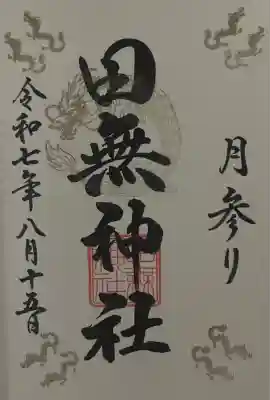 月参り
田無神社
令和七年八月十五日